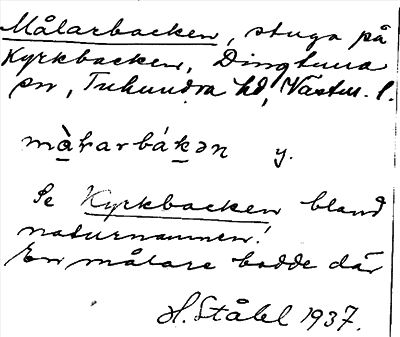 Målarbacken, stuga på
Kyrkbacken, Dingtuna
sn, Tuhundra hd, Västm. l.
mà̱larbáḵən y.
Se Kyrkbacken bland
naturnamnen!
En målare bodde där
H. Ståhl 1937.